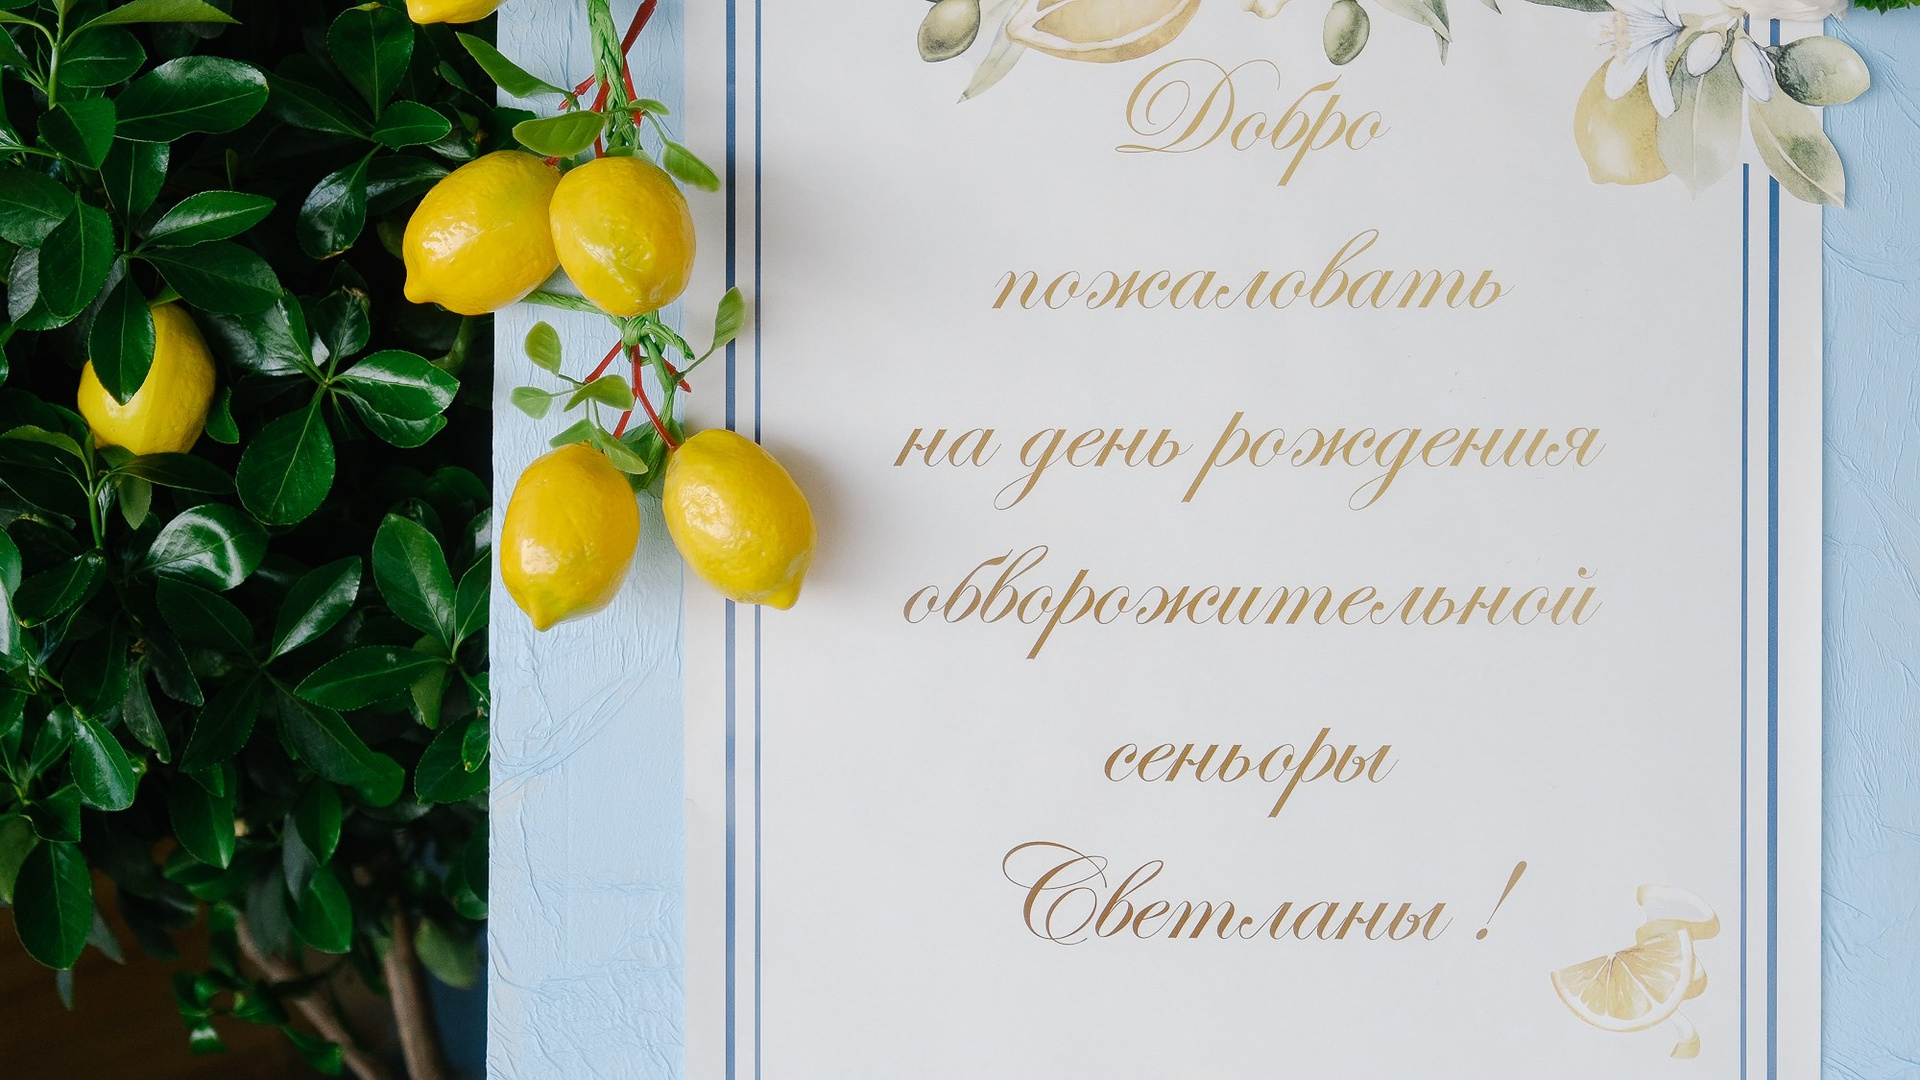 Добро
пожаловать
на день рождения
обворожительной
сеньоры
Светланы !